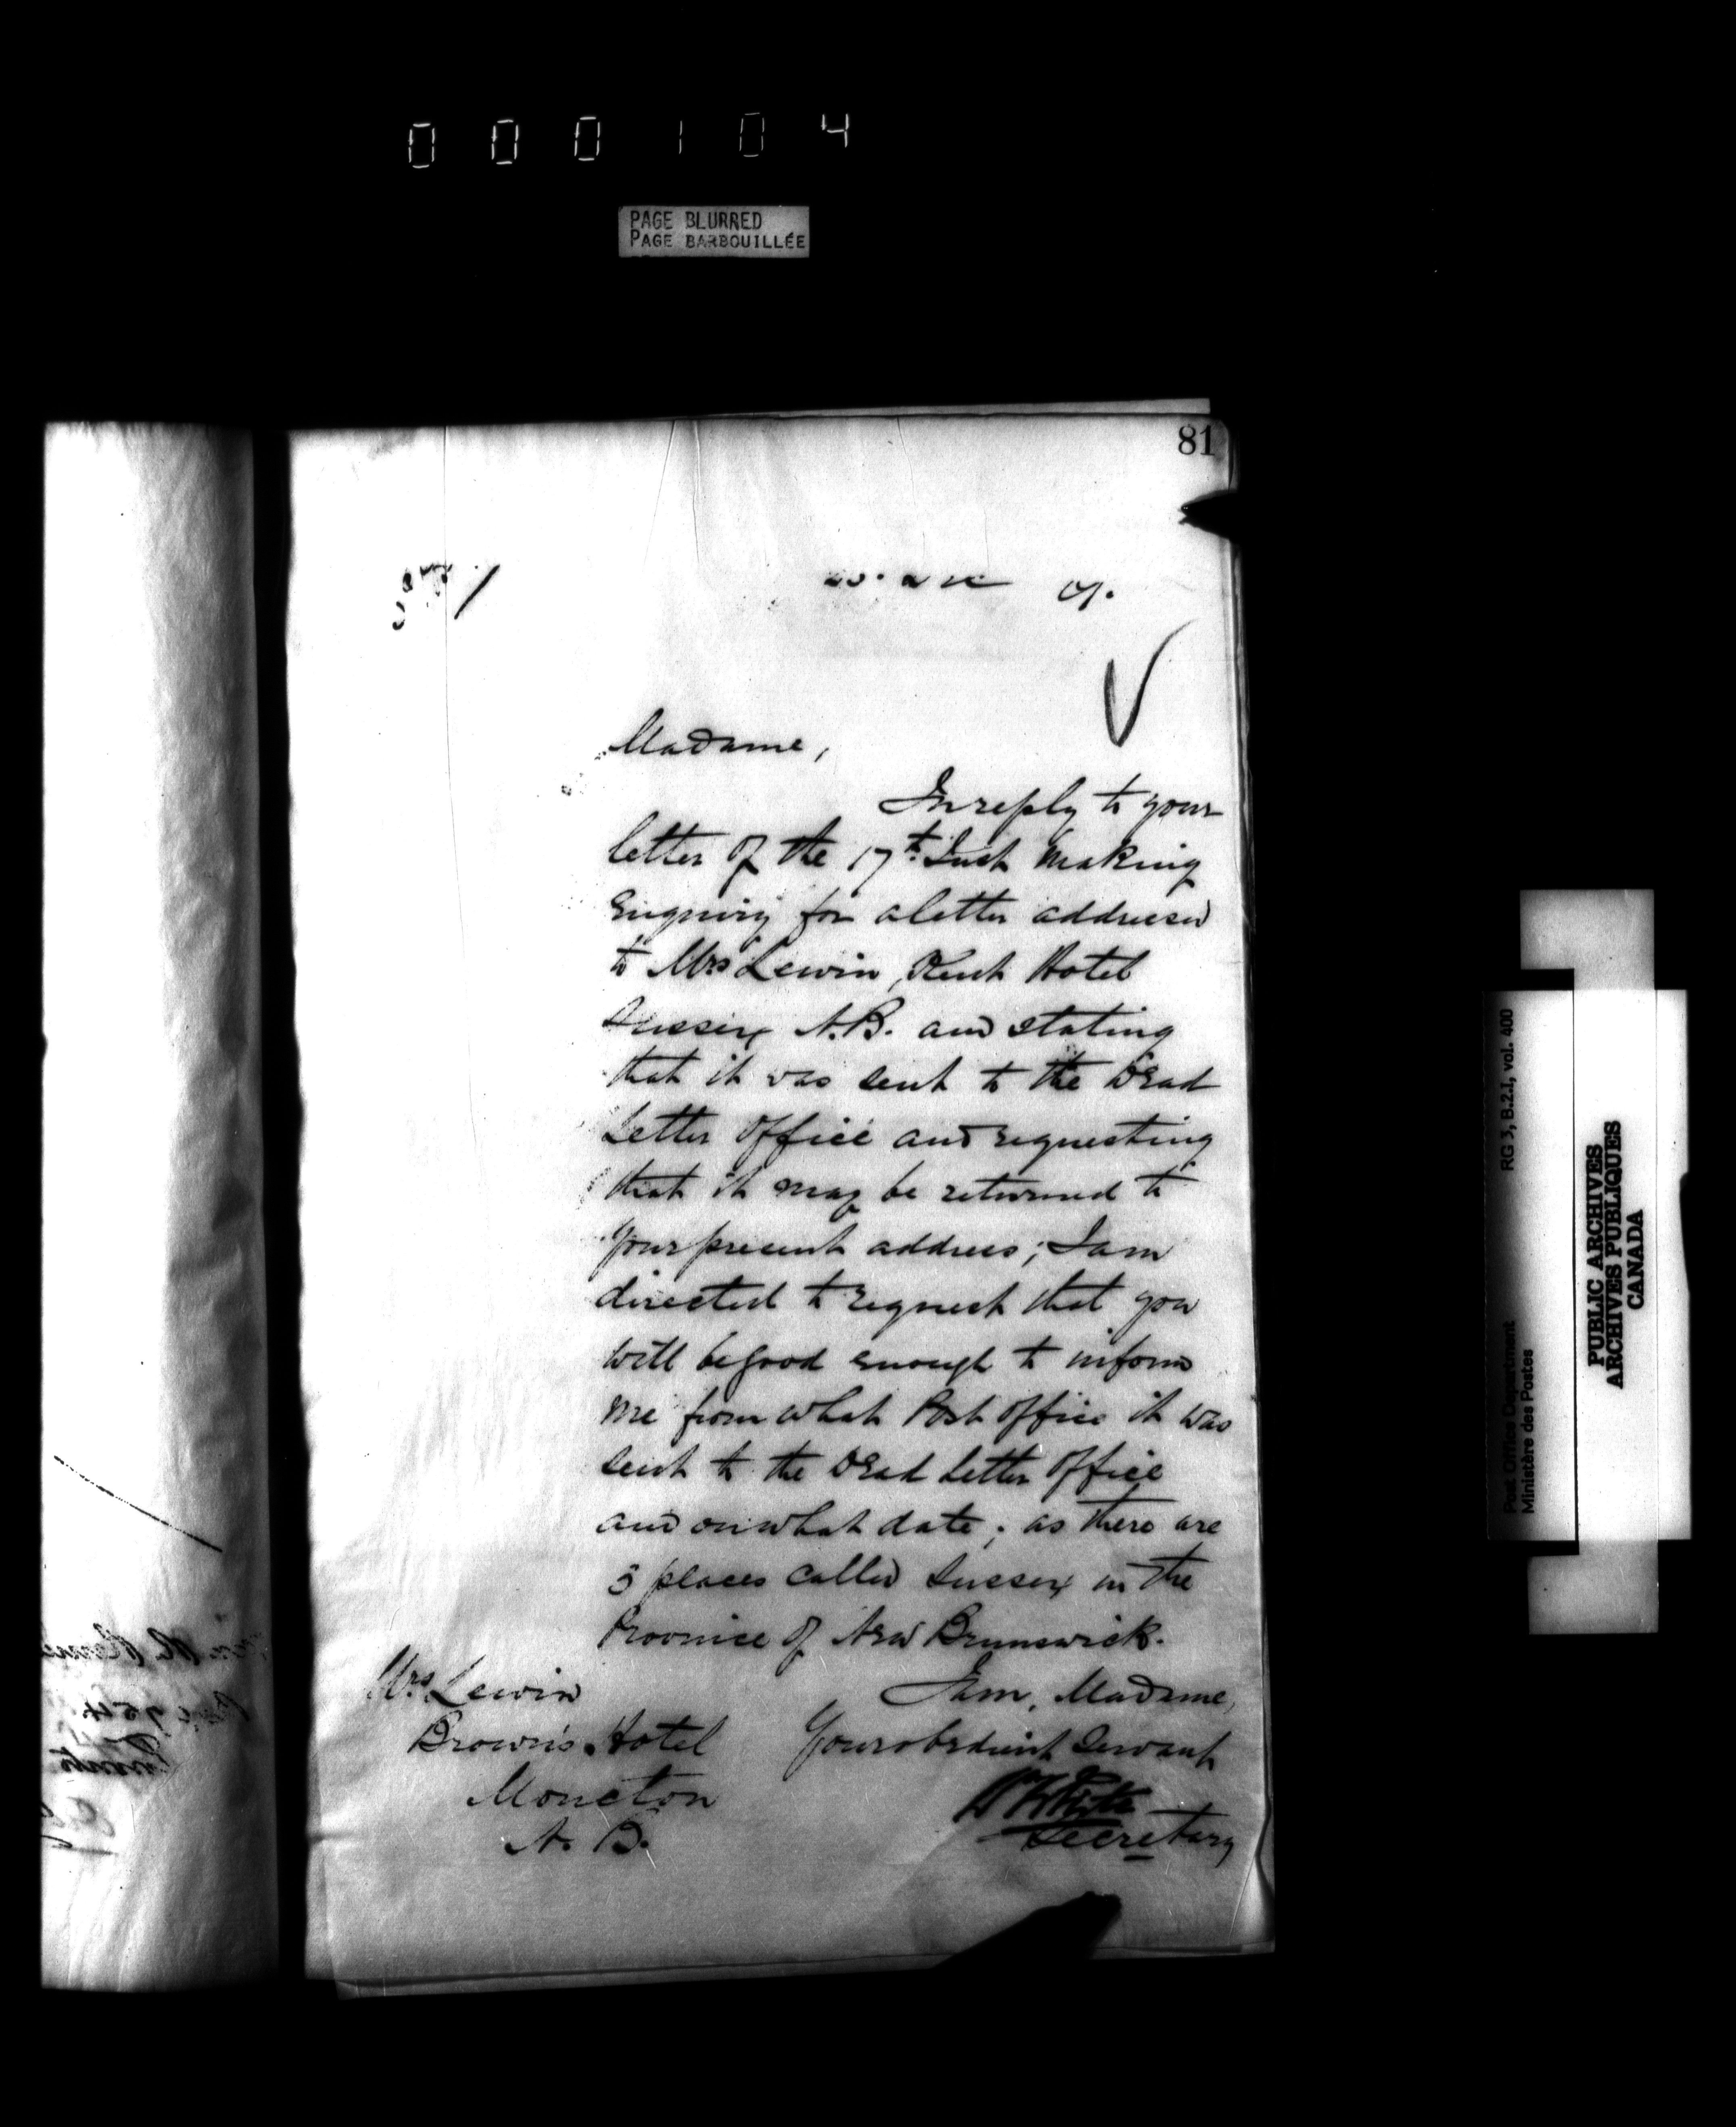 000104
PAGE BLURRED
PAGE BARBOUILLÉE
81
Madame,
In reply to your
letter of the 17th Inst making
enquiry for a letter addressed
to Mrs Lewin, Kent Hotel
Sussex N.B. and stating
that it was sent to the Dead
Letter Office and requesting
that it may be returned to
your present address; I am
directed to request that you
will be good enough to inform
me from what Post Office it was
sent to the Dead Letter Office
and on what date; as there are
3 places called Sussex in the
Province of New Brunswick.
I am, Madame,
Your obedient Servant
Secretary
Mrs Lewin
Brown's Hotel
Moncton
N. B.
RG 3, B.2.I, vol. 400
Post Office Department
Ministère des Postes
PUBLIC ARCHIVES
ARCHIVES PUBLIQUES
CANADA